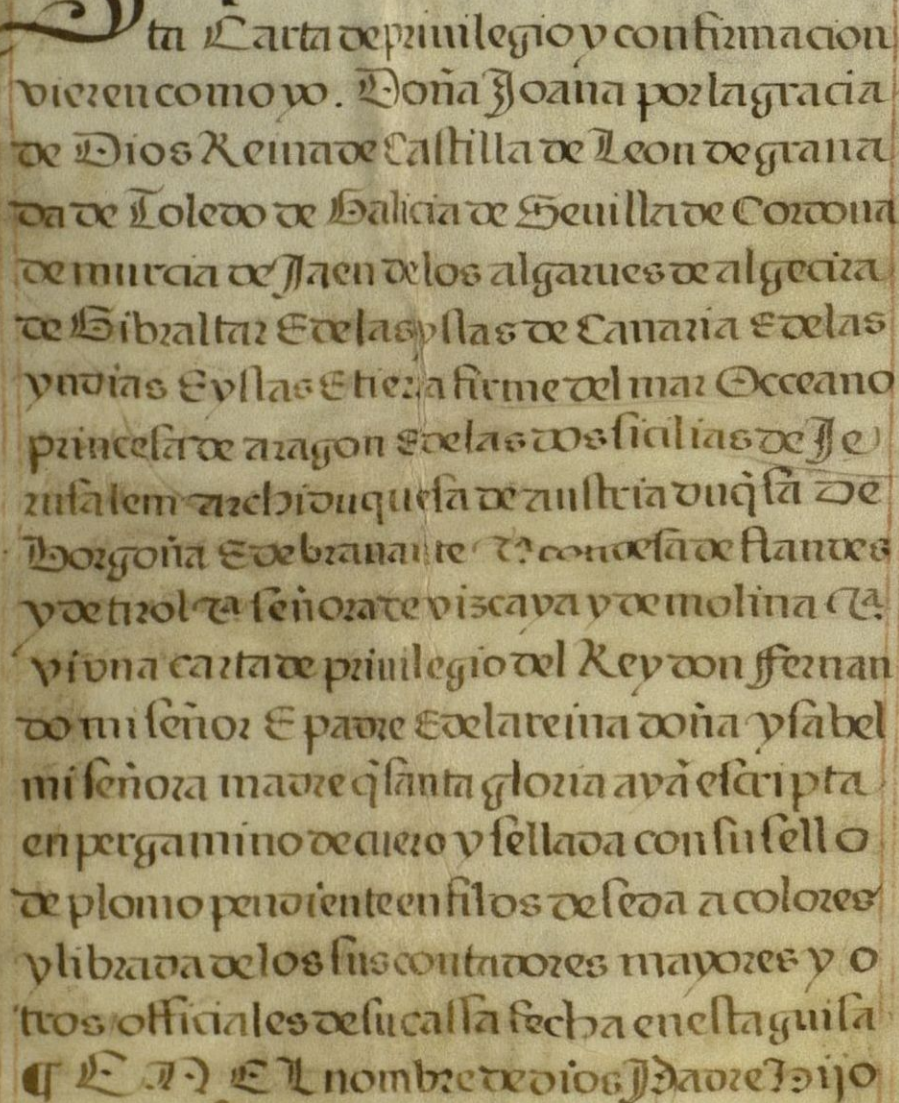 ta Carta de priuilegio y confirmacion
vieren como yo. Doña Joana por la gracia
de Dios Reina de Castilla de Leon de grana
da de Toledo de Galicia de Seuilla de Cordoua
de murcia de Jaen de los algarues de algecira
de Gibraltar E de las yslas de Canaria E de las
yndias E yslas E tierra firme del mar Occeano
princesa de aragon E de las dos sicilias de Je
rusalem archiduquesa de austria duq̃sa De
Borgoña E de brauante &ª condesa de flandes
y de tirol &ª señora de viscaya y de molina &ª
vi vna carta de priuilegio del Rey don ffernan
do mi señor E padre E de la reina doña ysabel
mi señora madre q̃ santa gloria ayã escripta
en pergamino de cuero y sellada con su sello
de plomo pendiente en filos de seda a colores
y librada de los sus contadores mayores y o
tros officiales de su cassa fecha en esta guisa
¶ E N El nombre de dios Padre Hijo